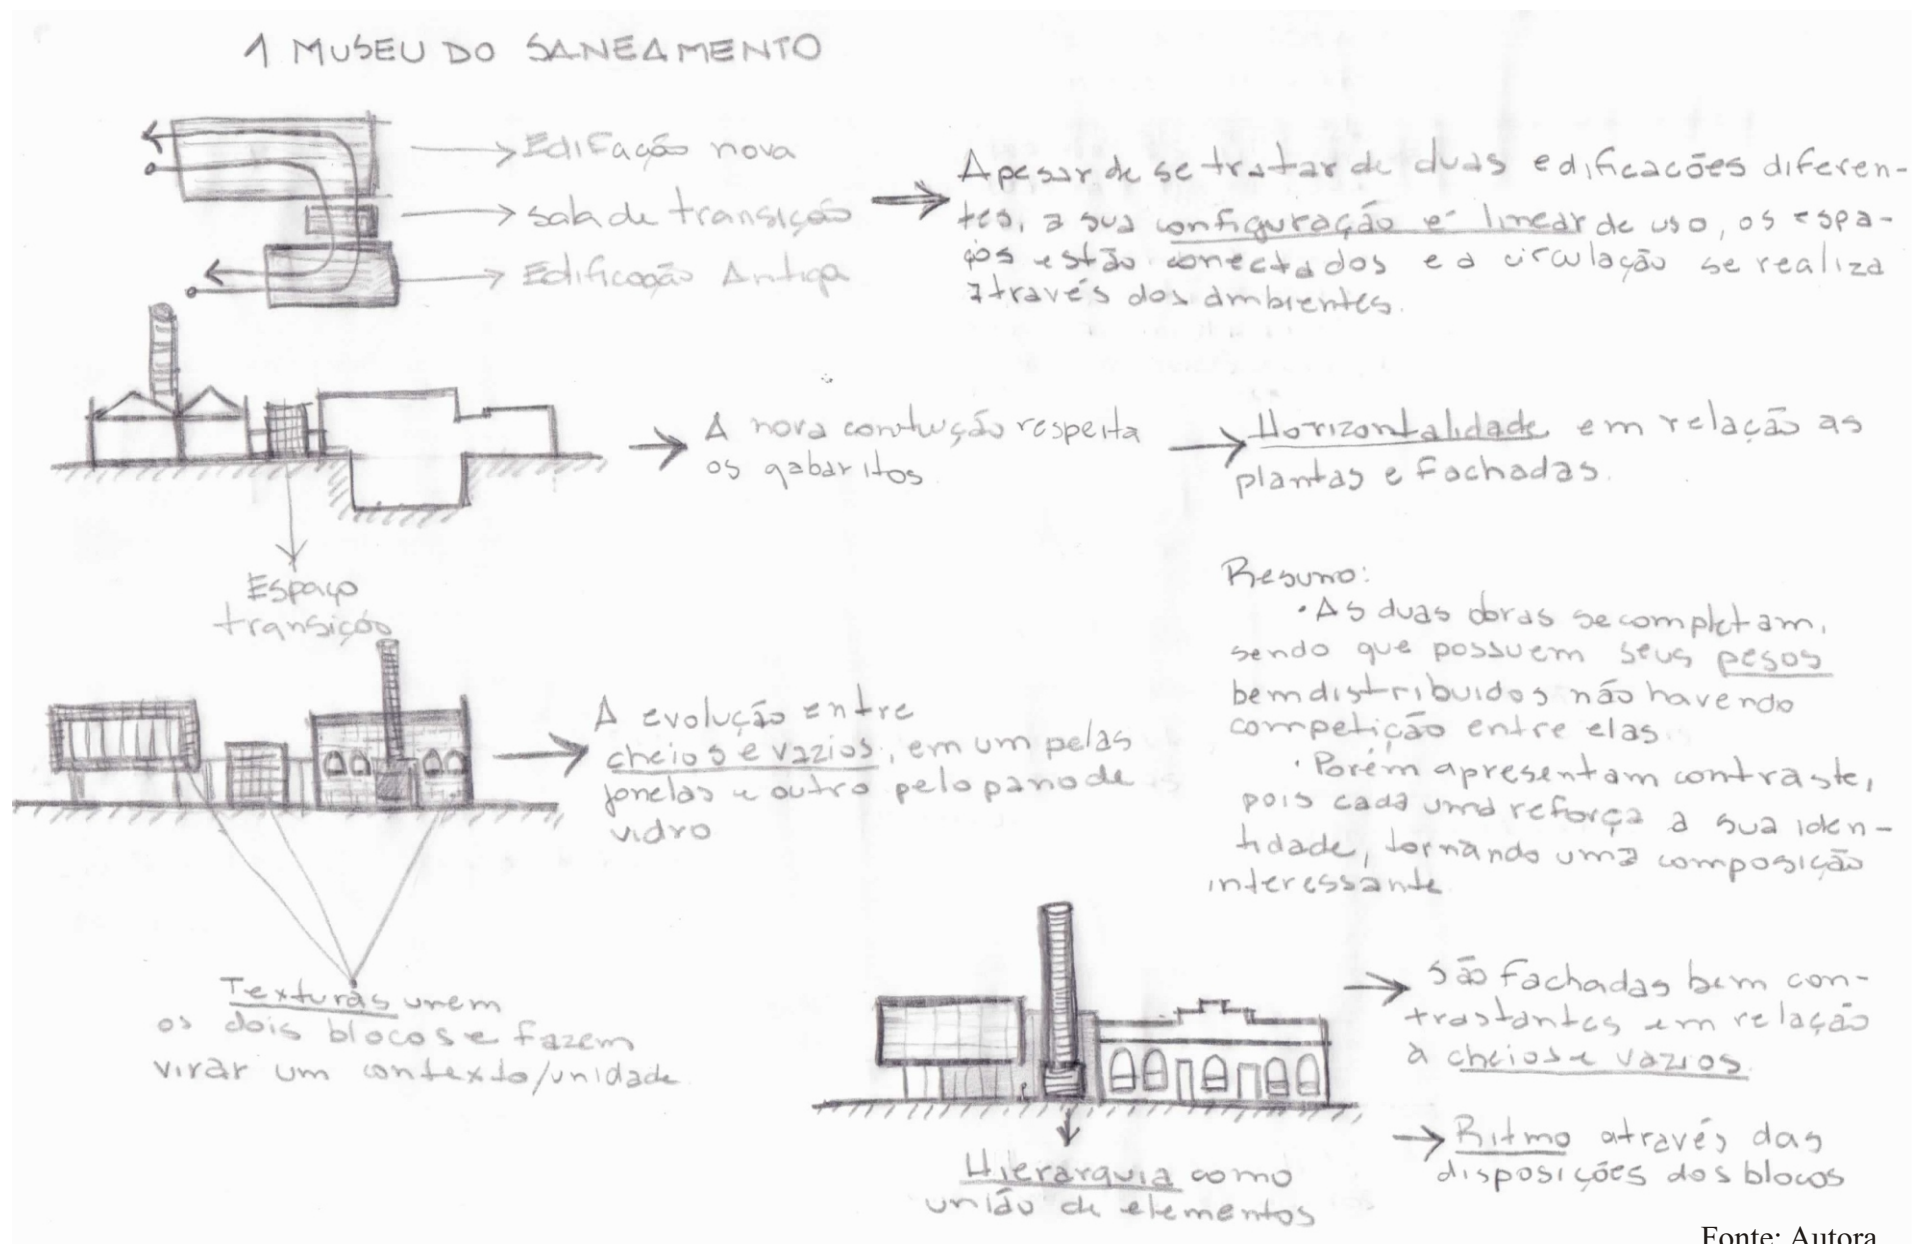 1 MUSEU DO SANEAMENTO
Edifação nova
sala de transição
Edificação Antiga
Apesar de se tratar de duas edificacões diferen-
tes, a sua configuração é linear de uso, os espa-
ços estão conectados e a circulação se realiza
através dos ambientes.
A nova contução respeita
os gabaritos
Horizontalidade em relação as
plantas e fachadas.
Espaço
transição
Resumo:
• As duas obras se completam,
sendo que possuem seus pesos
bem distribuidos não havendo
competição entre elas
• Porém apresentam contraste,
pois cada uma reforça a sua iden-
tidade, tornando uma composição
interessante
A evolução entre
cheios e vazios, em um pelas
janelas e outro pelo pano de
vidro
Texturas unem
os dois blocos e fazem
virar um contexto/unidade
São fachadas bem con-
trastantes em relação
à cheios e vazios
Ritmo através das
disposições dos blocos
Hierarquia como
união de elementos
Fonte: Autora